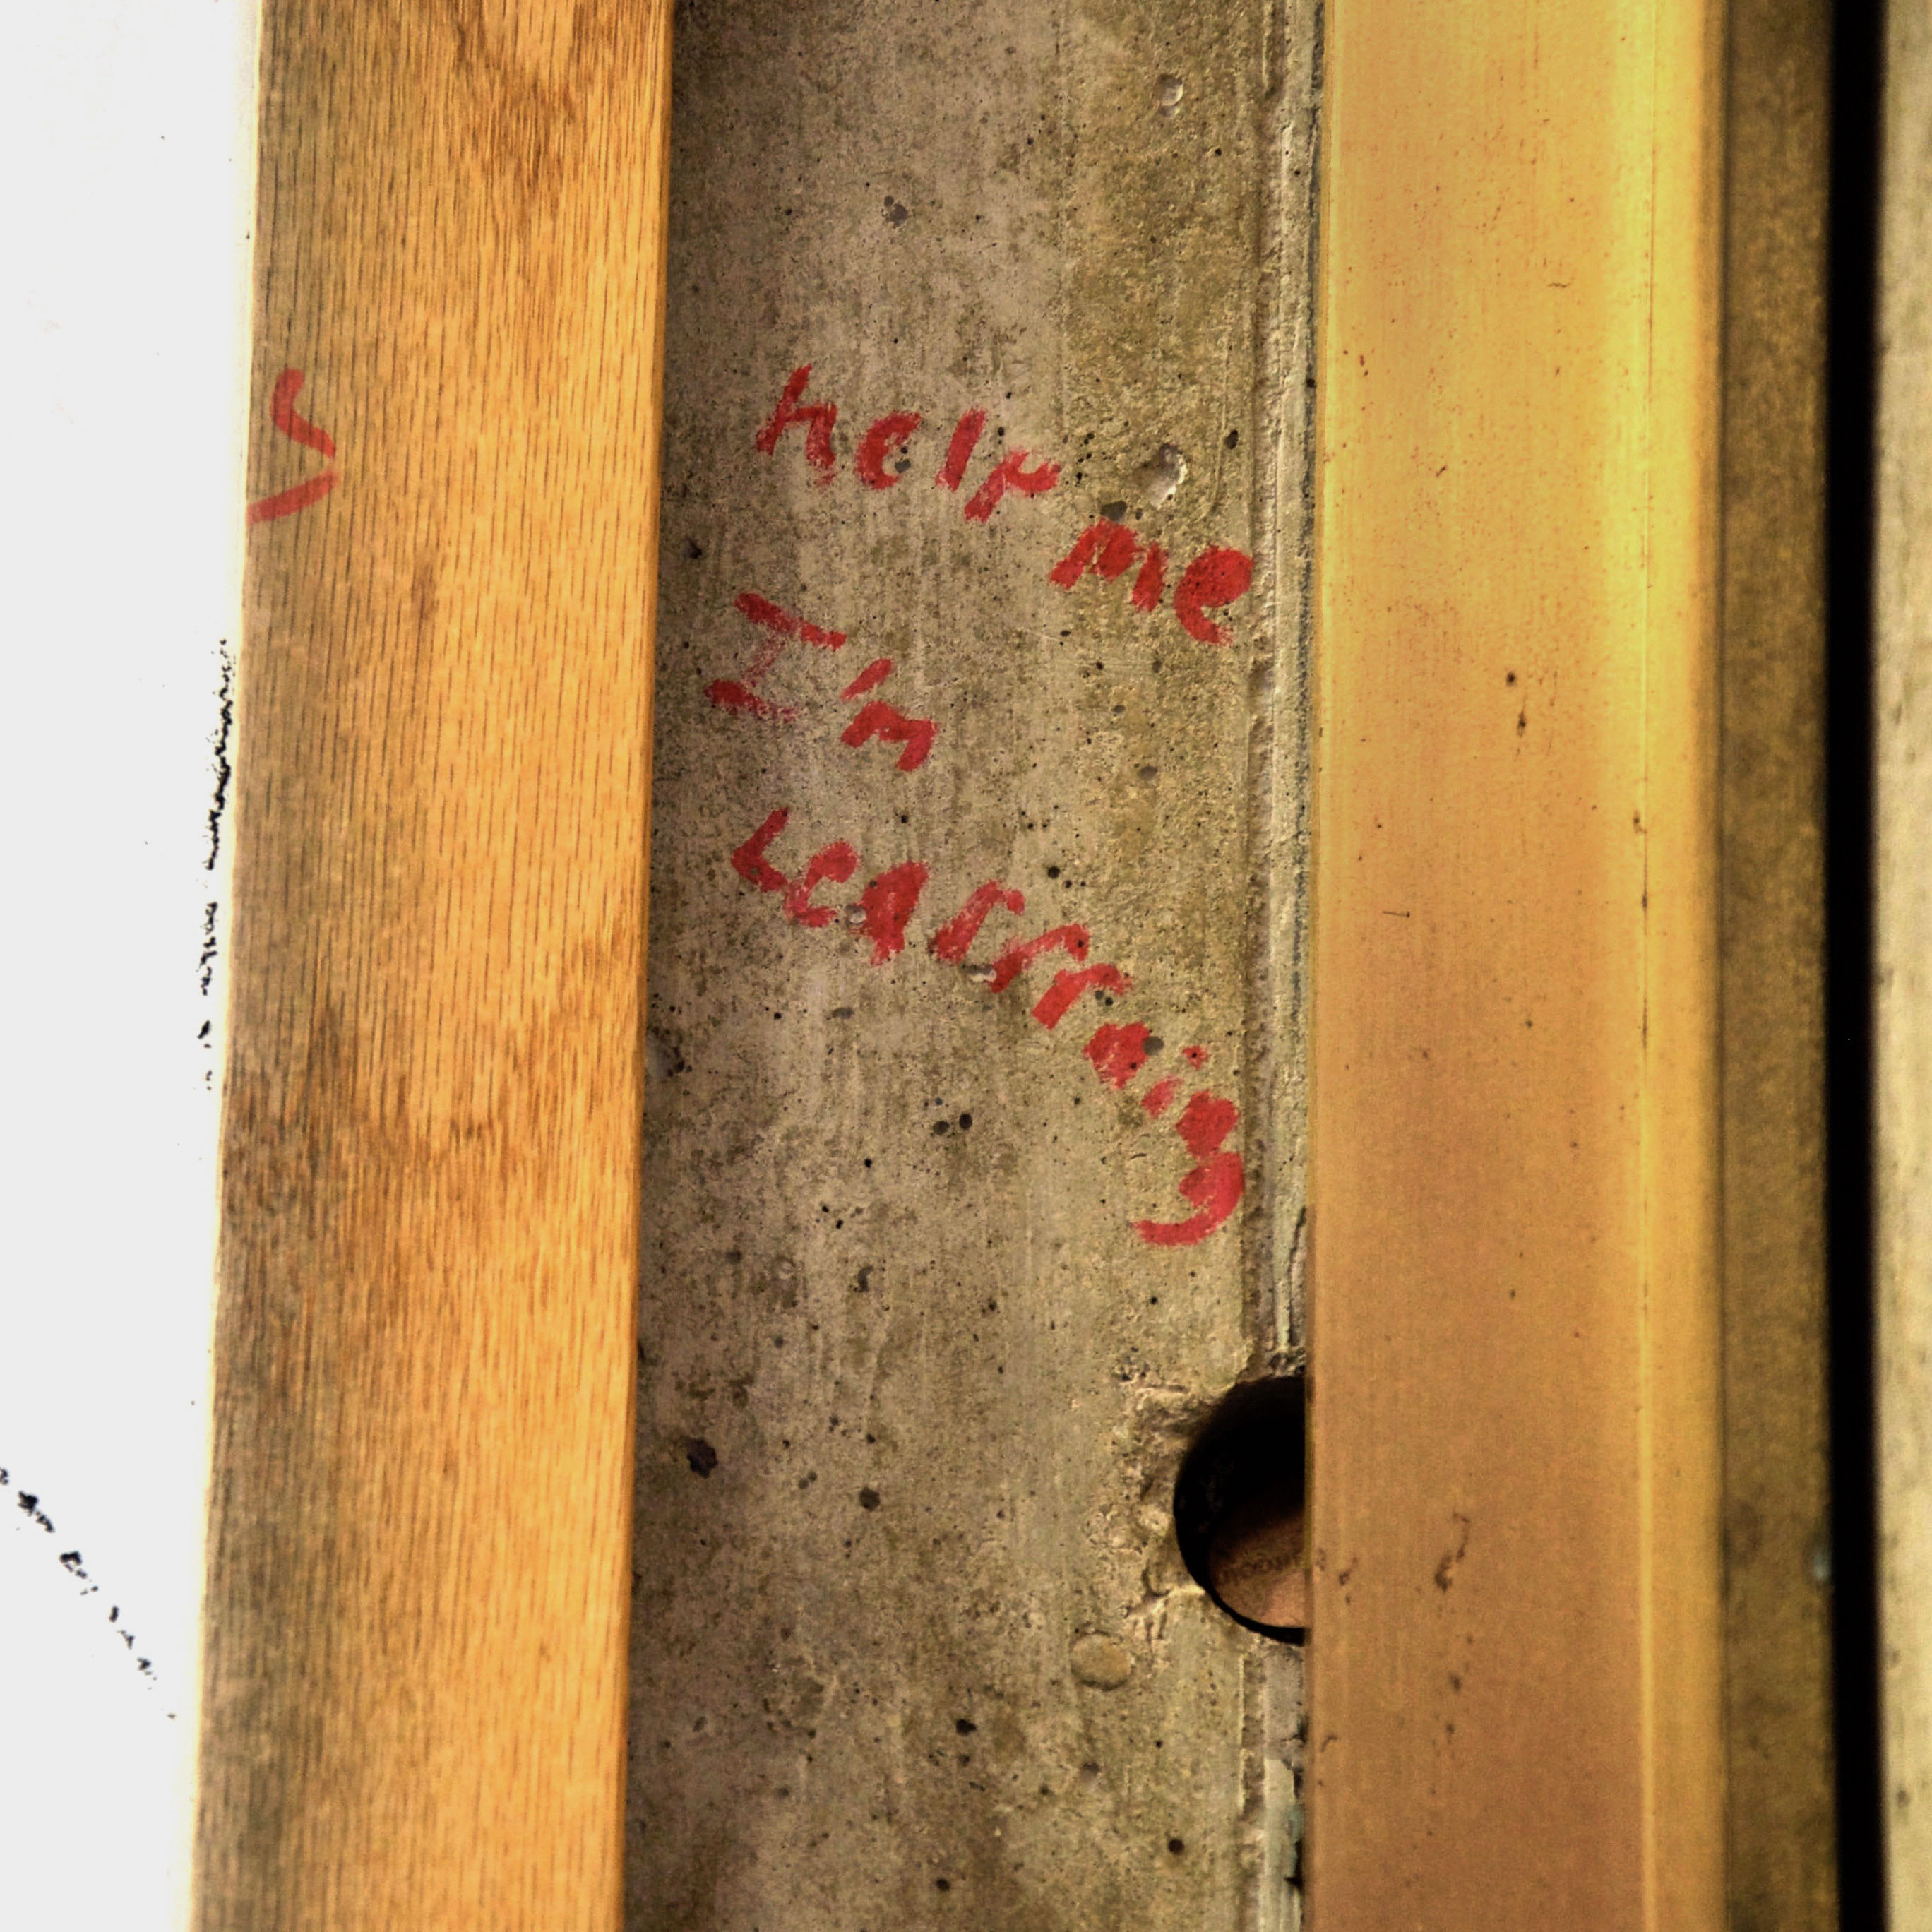 help me
I'm
Learrrning